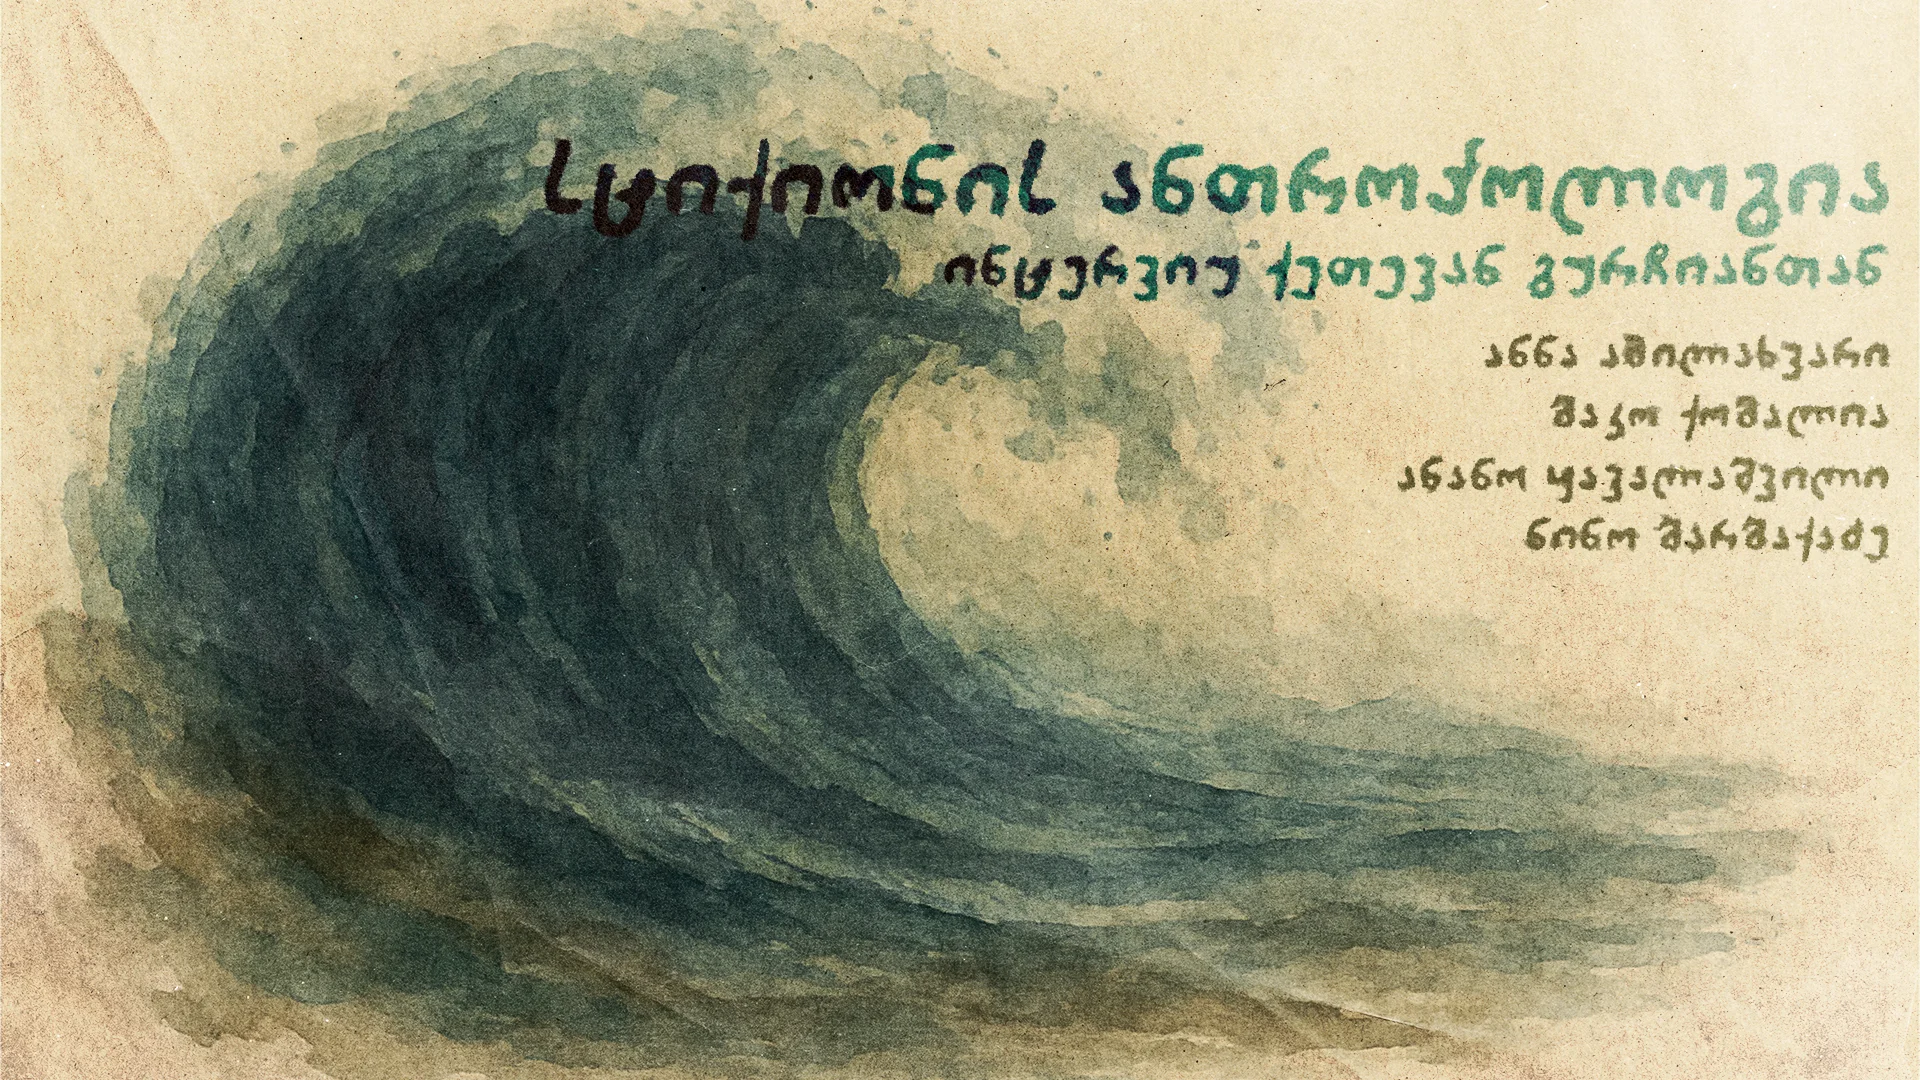 სტიქიონის ანთროპოლოგია
ინტერვიუ ქეთევან გურჩიანთან
ანნა ამილახვარი
ბაკო ქობალია
ანანო ყავალაშვილი
ნინო ბარბაქაძე